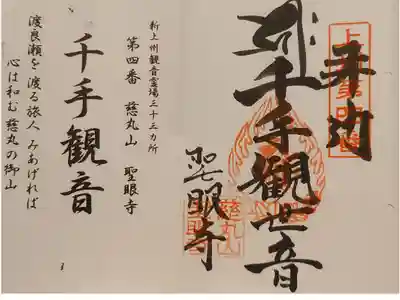 奉拝
千手観世音
聖眼寺
新上州観音霊場三十三カ所
第四番 慈丸山 聖眼寺
千手観音
渡良瀬を渡る旅人 みあげれば
心は和む 慈丸の御山